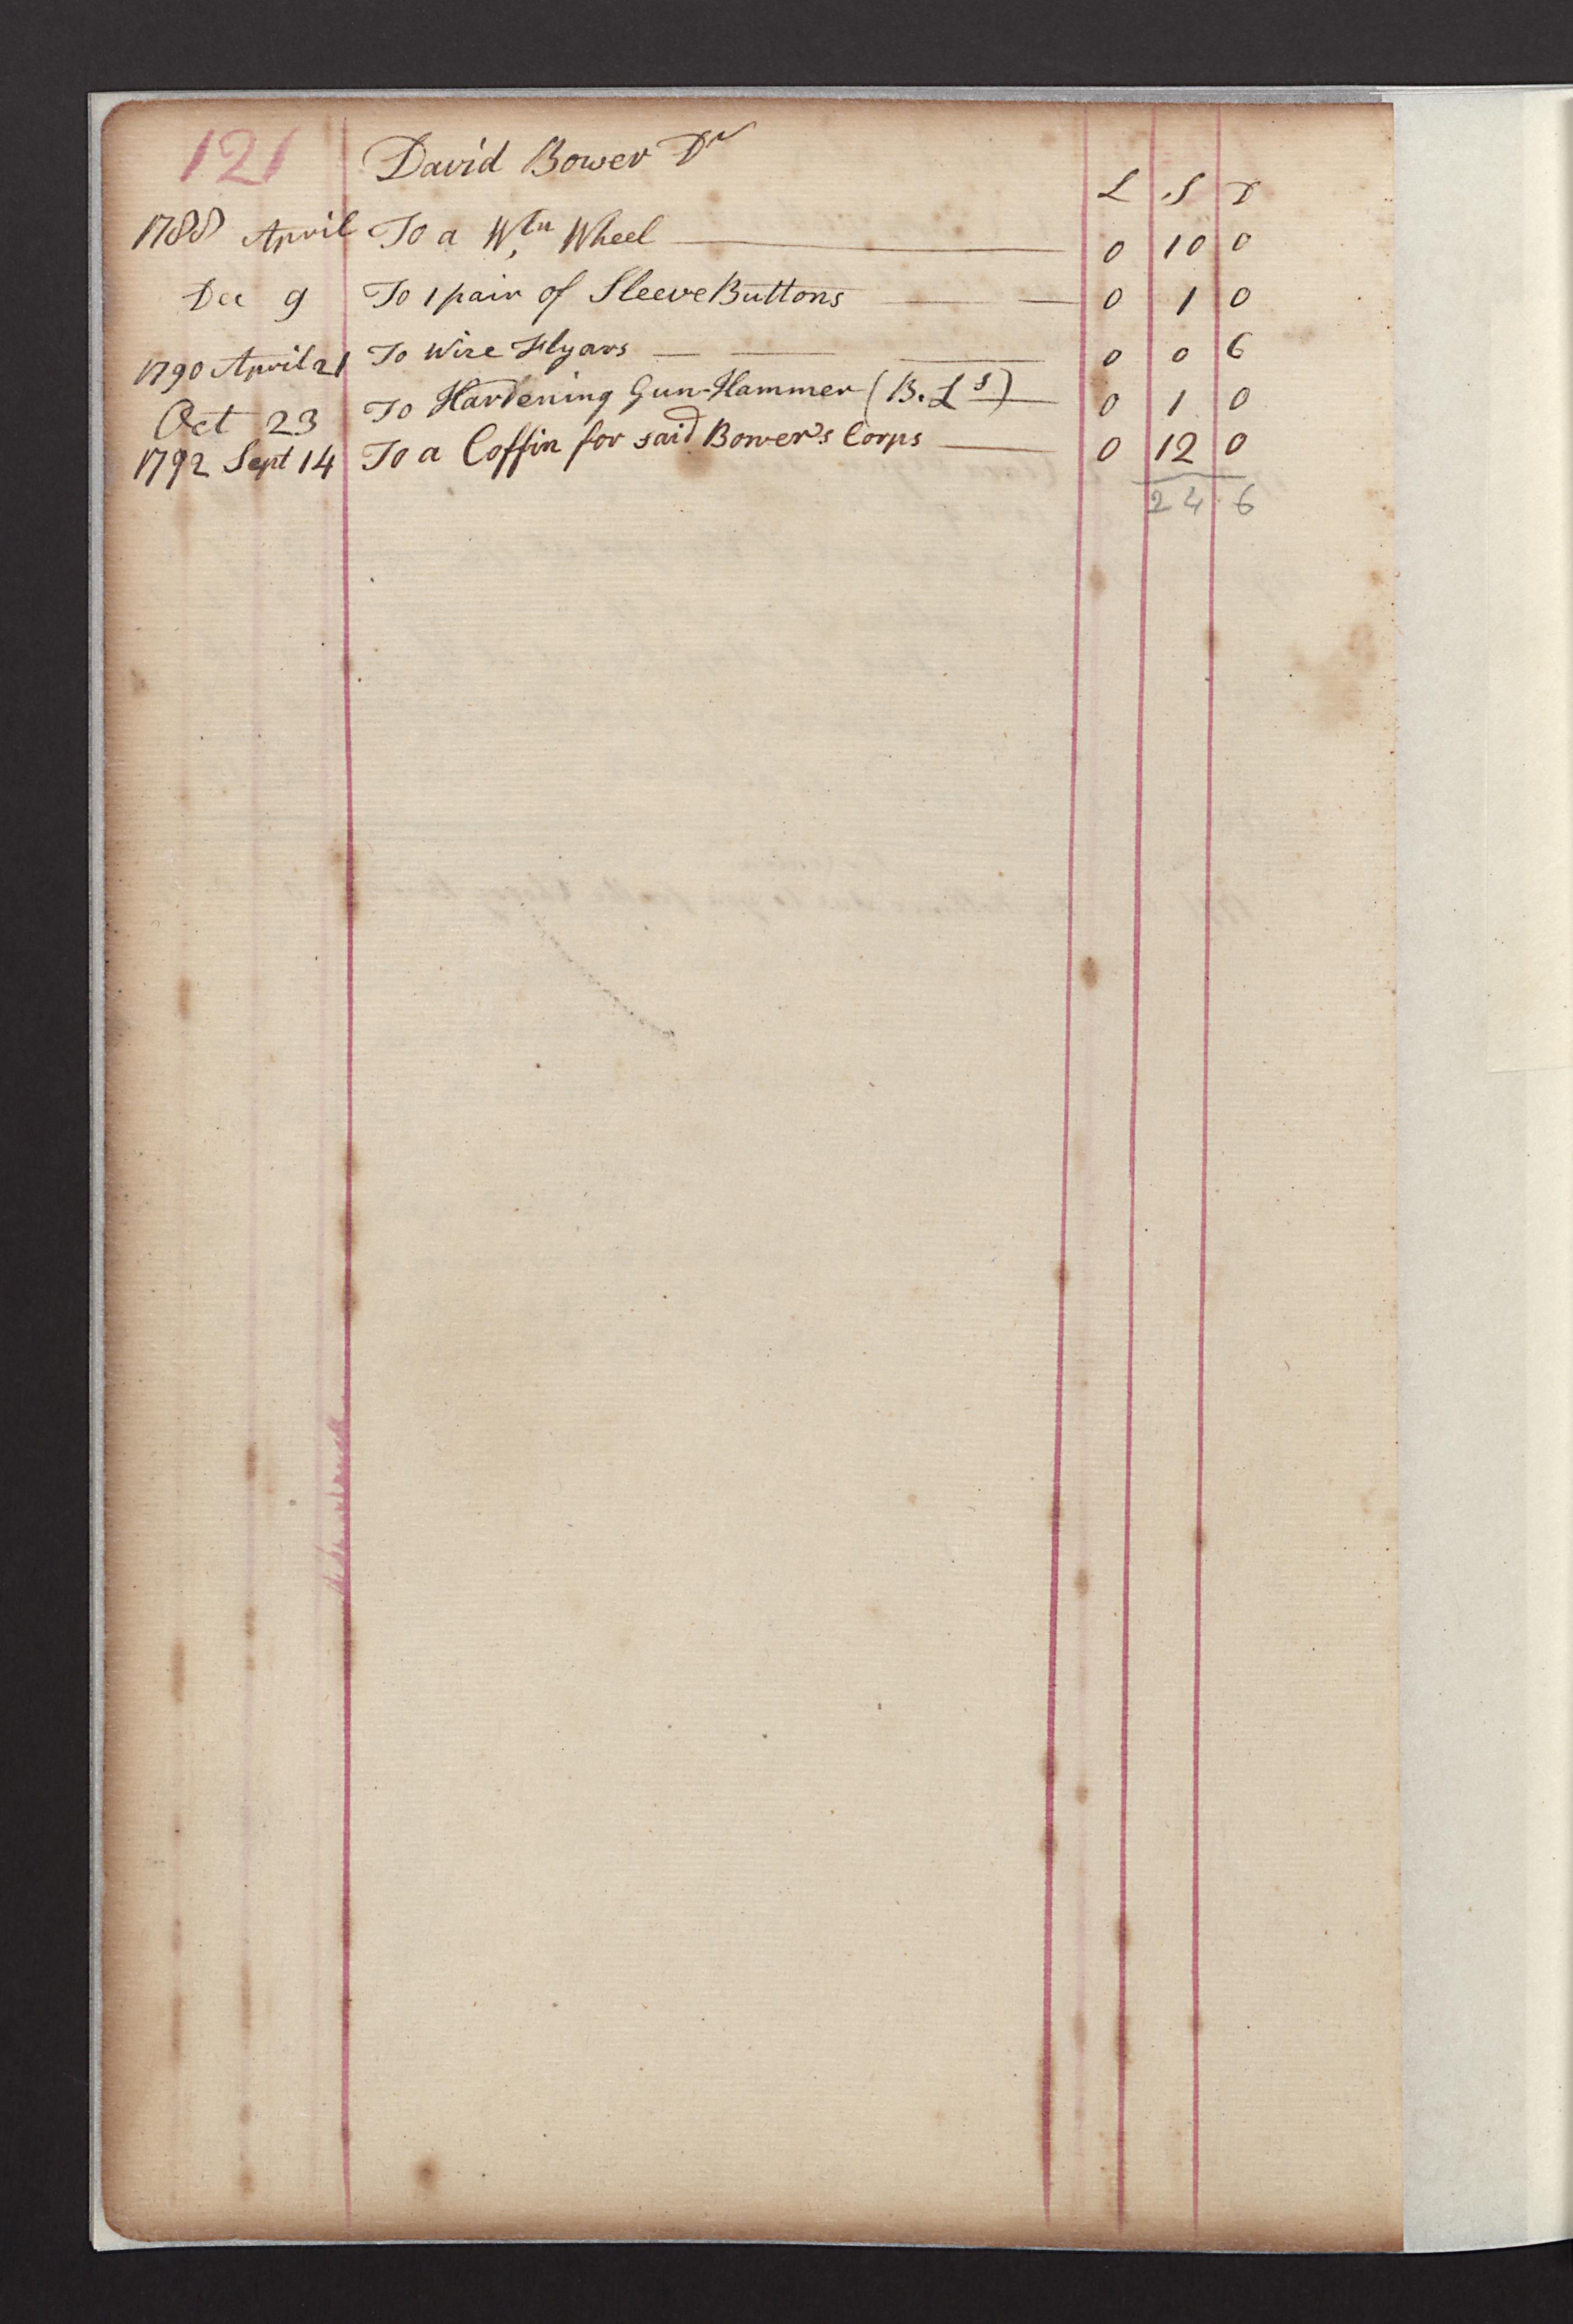 121 David Bower Dr
L S D
1788 April To a Wln Wheel 0 10 0
Dec 9 To 1 pair of Sleeve Buttons 0 1 0
1790 April 21 To Wire Flyars 0 0 6
Oct 23 To Hardening Gun-Hammer (B. Ls) 0 1 0
1792 Sept 14 To a Coffin for said Bower's Corps 0 12 0
24 6